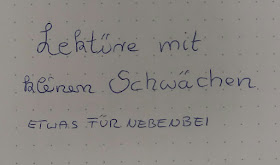 Lektüre mit
kleinen Schwächen
ETWAS FÜR NEBENBEI